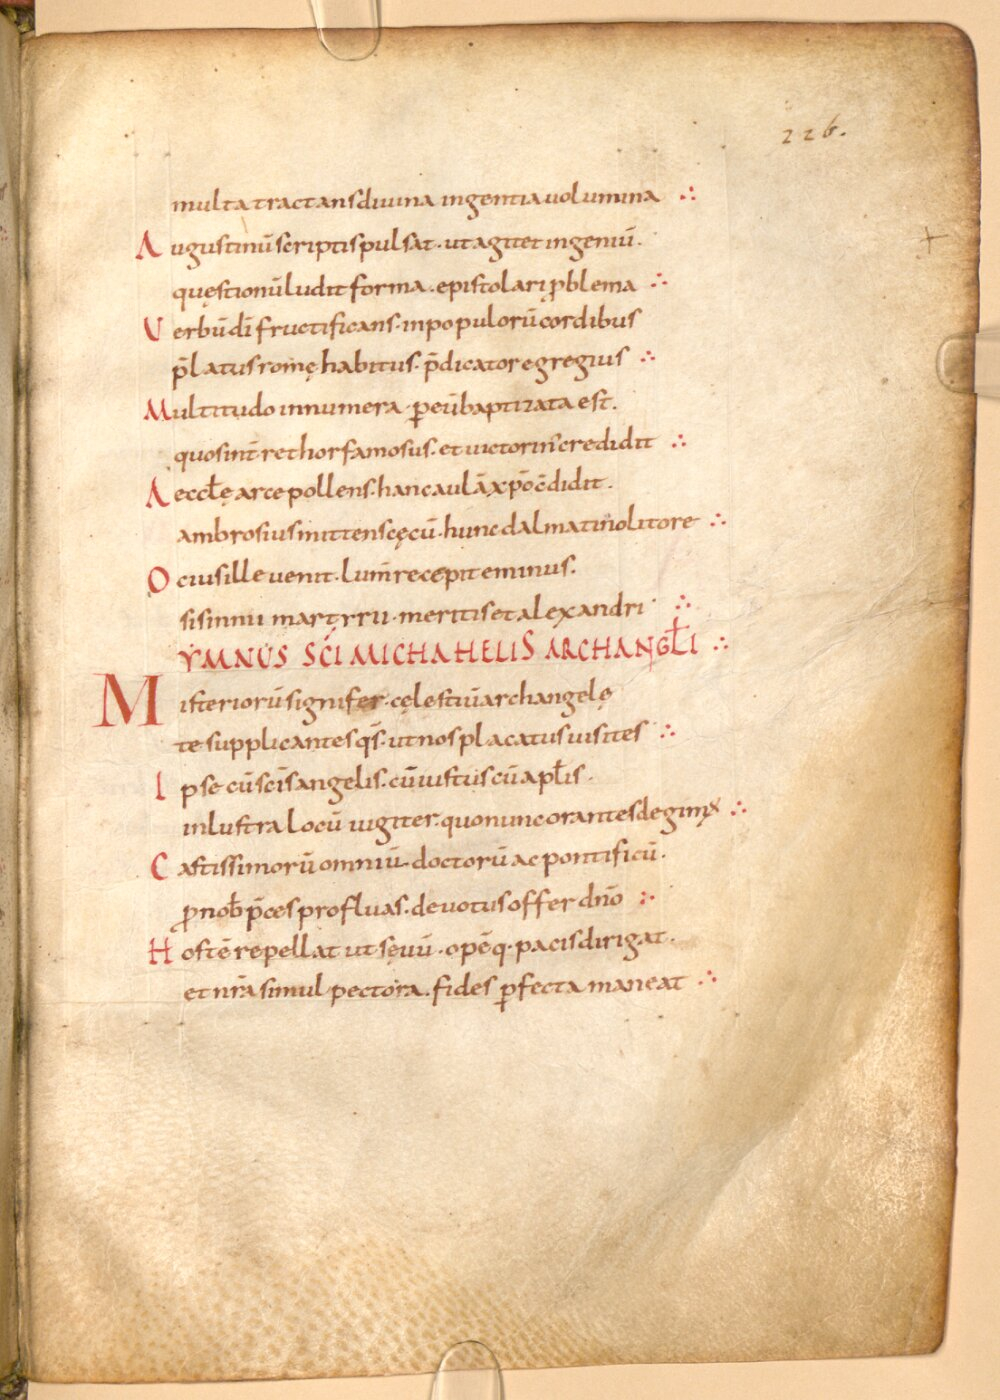 226.
multa tractans diuina ingentia uolumina ∴
Augustinū scriptis pulsat · ut agitet ingeniū.
quęstionū ludit forma · epistolari ꝓblema ∴
Uerbū dī fructificans · in populorū cordibus
p̄latus romę habitus · p̄dicator egregius ∴
Multitudo innumera · ꝑ eū baptizata est.
quos int̄ rethor famosus · et uictorin᾽ credidit ∴
Aeccłę arce pollens · hanc aulā xp̄o c̄didit.
ambrosius mittens cęcū · hunc dalmatino litore ∴
Ocius ille uenit · lum̄ recepit eminus.
sisinnii martyrii · meritis et alexandri ∴
YMNUS SC̄I MICHAHELIS ARCHANGŁI ∴
Misteriorū signifer · cęlestiū archangelę
te supplicantes qs̄ · ut nos placatus uisites ∴
Ipse cū sc̄is angelis · cū iustis cū apłis.
inlustra locū iugiter · quo nunc orantes degimꝰ ∴
Castissimorū omniū · doctorū ac pontificū.
ꝓ nob̄ p̄ces profluas · deuotus offer dn̄o ∴
Hostē repellat ut sęuū · opēq · pacis dirigat.
et nr̄a simul pectora · fides ꝑfecta maneat ∴